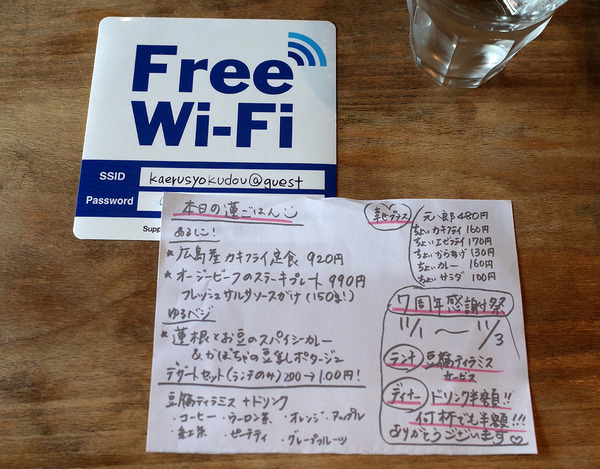 Free
Wi-Fi
SSID kaerusyokudou@guest
Password
Supp
本日の蓮ごはん
あるしこ!
広島産カキフライ定食 920円
オージービーフのステーキプレート 990円
フレッシュサルサソースがけ (150g!)
ゆるベジ
蓮根とお豆のスパイシーカレー
&かぼちゃの豆乳ポタージュ
デザートセット(ランチのみ) 200→100円!
豆腐ティラミス+ドリンク
・コーヒー・ウーロン茶・オレンジ・アップル
・紅茶・ピーチティ・グレープフルーツ
プラス
480円
ちょいカキフライ 160円
ちょいエビフライ 170円
ちょいからあげ 130円
ちょいカレー 160円
ちょいサラダ 100円
7周年感謝祭
11/1 〜 11/3
ランチ 豆腐ティラミス
サービス
ディナー ドリンク半額!!
何杯でも半額!!!
ありがとうございます♡